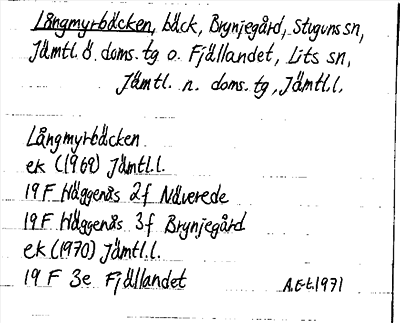 Långmyrbäcken, bäck, Brynjegård, Stuguns sn,
Jämtl. ö. doms. tg o. Fjällandet, Lits sn,
Jämtl. n. doms. tg, Jämtl.l.
Långmyrbäcken
ek (1969) Jämtl.l.
19 F Häggenås 2 f Näverede
19 F Häggenås 3 f Brynjegård
ek (1970) Jämtl.l.
19 F 3e Fjällandet
A.E-t.1971